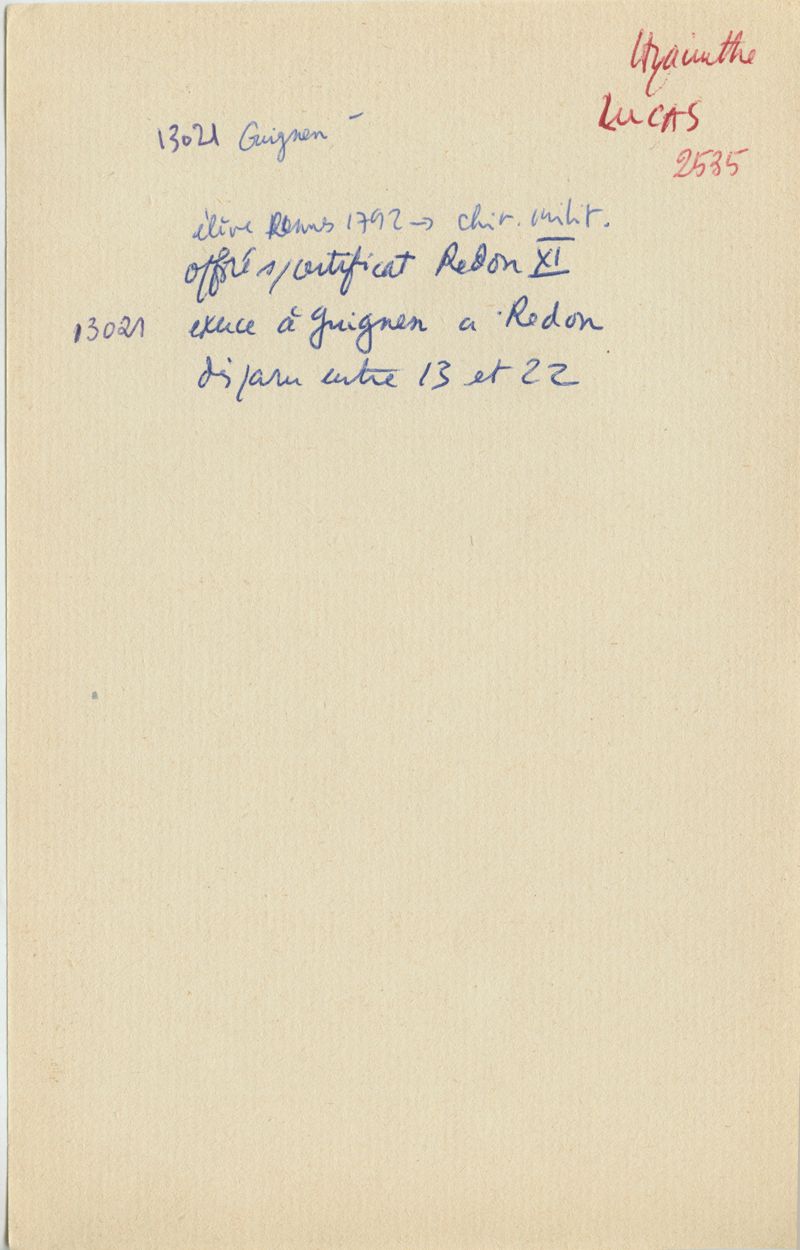 Hyacinthe
LUCAS
2535
13021 Guignen -
élève Rennes 1792 → chir. milit.
s/certificat Redon XI
13021 exerce à Guignen a Redon
disparu entre 13 et 22